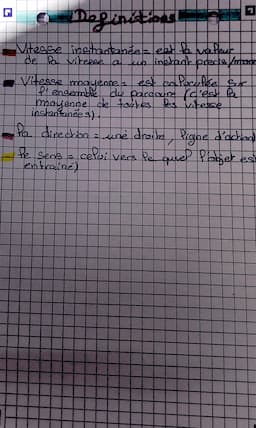 Definitions
Vitesse instantanée = est la valeur
de la vitesse a un instant precis/
Vitesse moyenne = est calculée sur
l'ensemble du parcours (c'est la
moyenne de toutes les vitesse
instantanées).
la direction = une droite, ligne d'action
le sens = celui vers le quel l'objet est
entrainé)